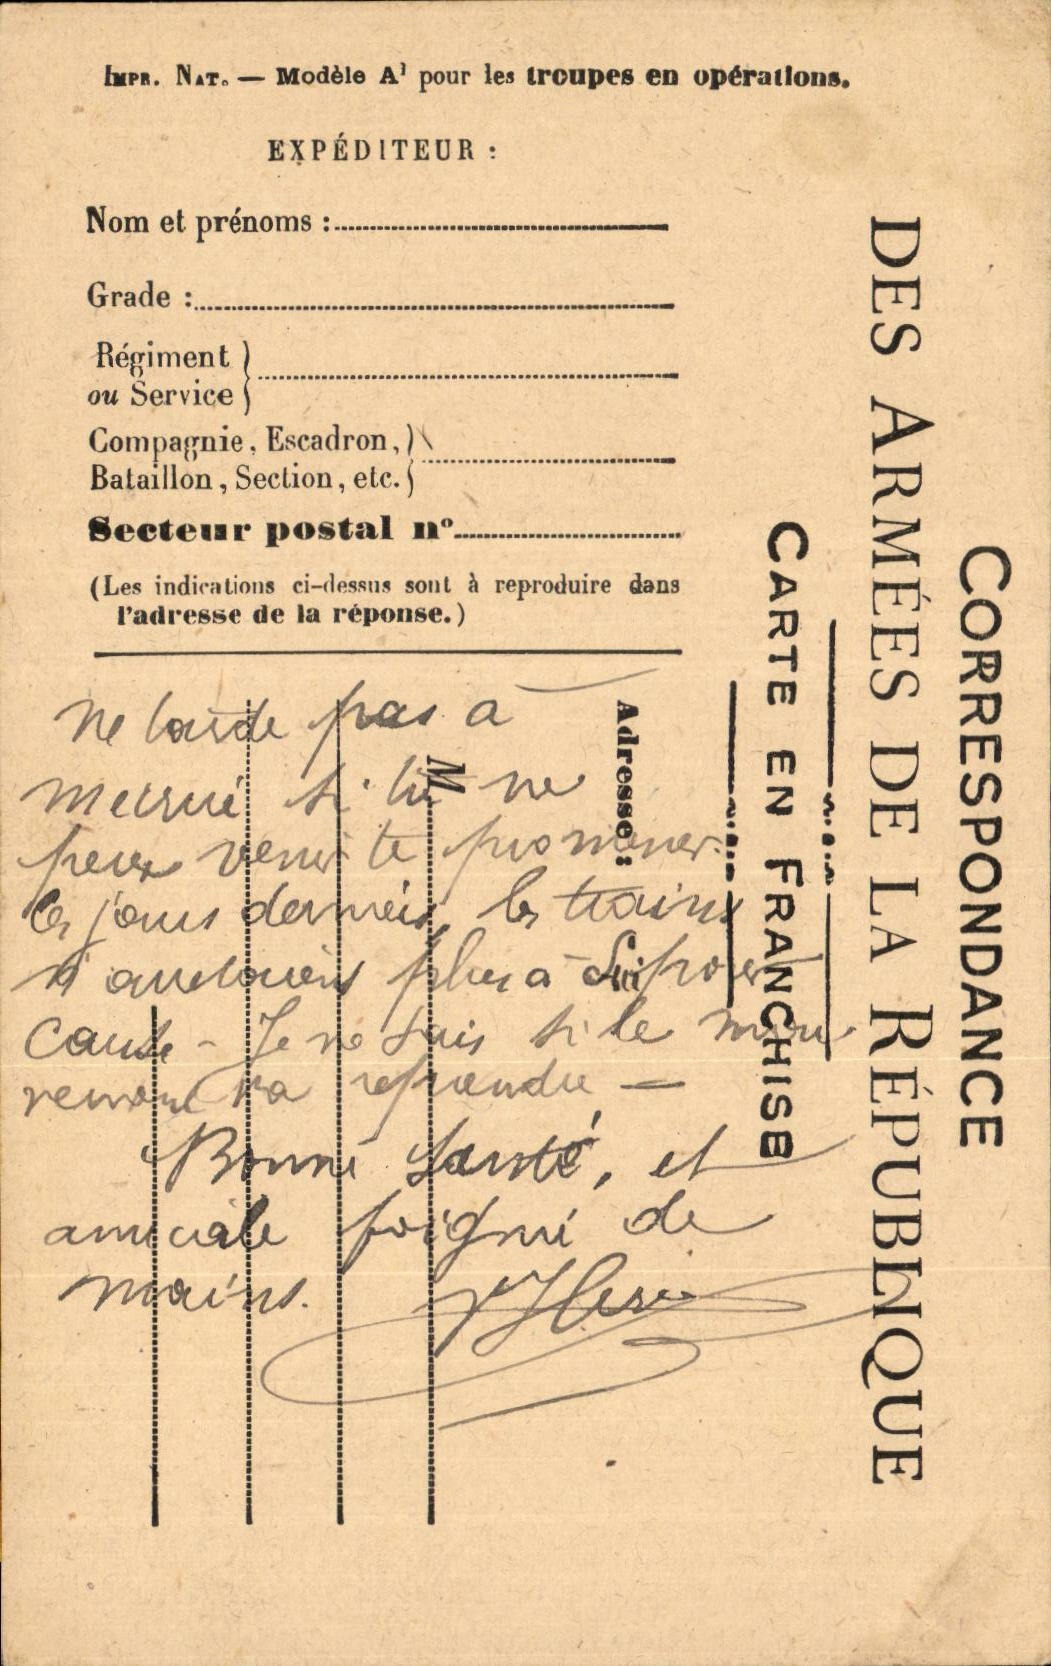 IMPR. NAT. — Modèle A¹ pour les troupes en opérations.
EXPÉDITEUR :
Nom et prénoms :
Grade :
Régiment
ou Service
Compagnie, Escadron,
Bataillon, Section, etc.
Secteur postal n°
(Les indications ci-dessus sont à reproduire dans
l'adresse de la réponse.)
CORRESPONDANCE
DES ARMÉES DE LA RÉPUBLIQUE
CARTE EN FRANCHISE
Adresse :
M
ne tarde pas à
si tu ne
peux venir te promener.
les jours derniers, les trains
plus à
cause - Je ne sais si le mou
va reprendre —
Bonne santé, et
amicale poignée de
mains.